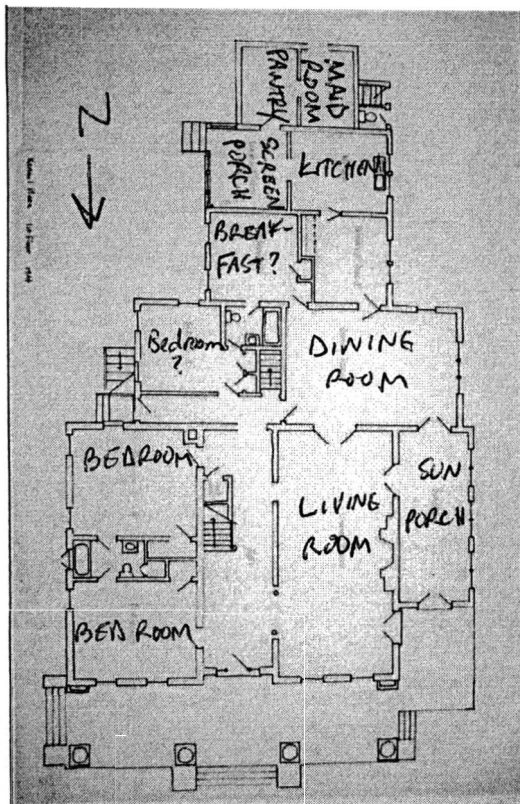 MAID
ROOM
PANTRY
SCREEN
PORCH
KITCHEN
BREAK-
FAST?
Bedroom
?
DINING
ROOM
BEDROOM
SUN
PORCH
LIVING
ROOM
BED ROOM
N